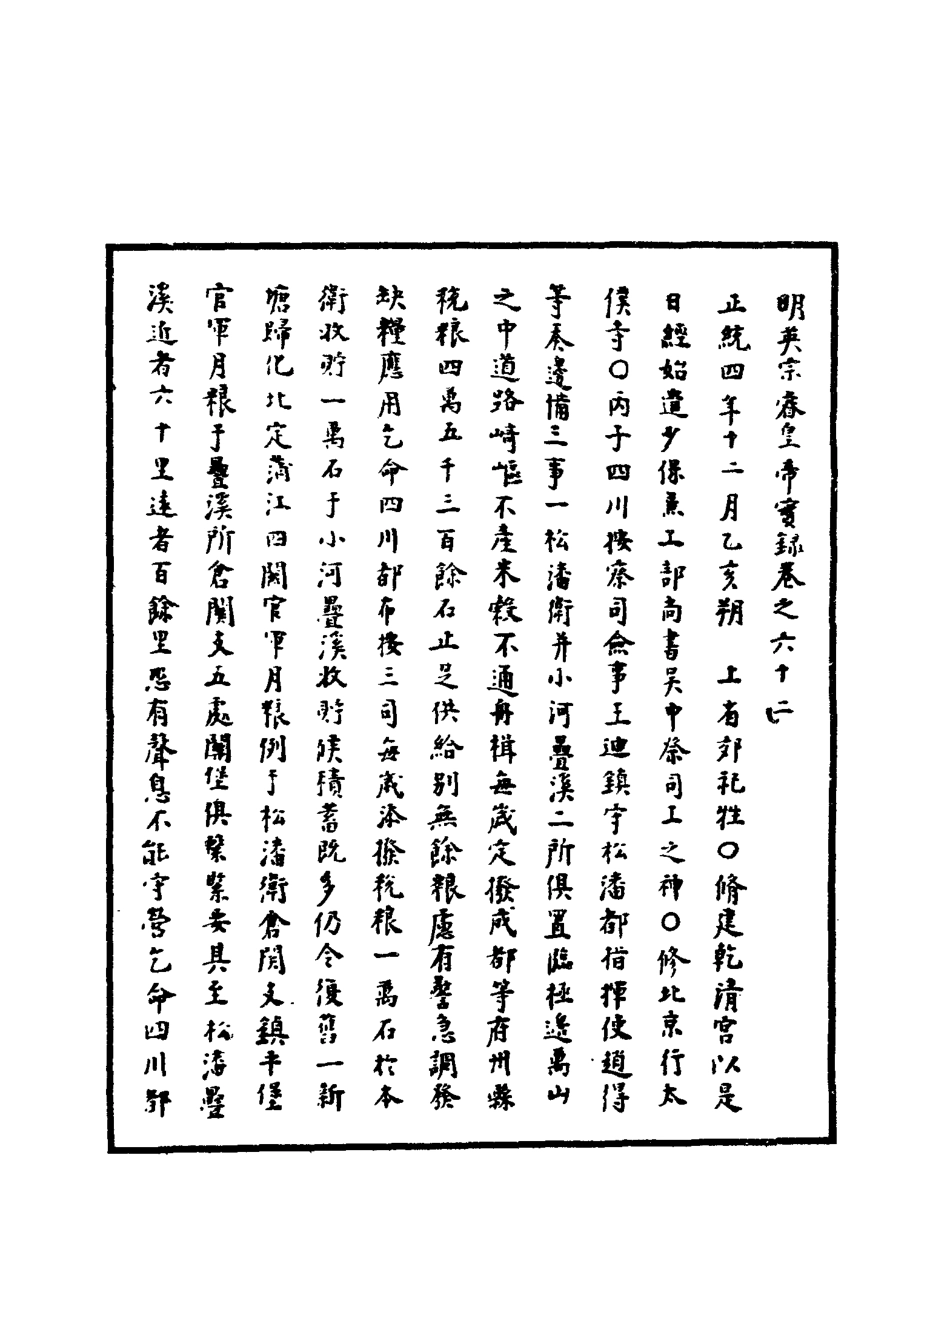 明英宗睿皇帝實錄卷之六十二
正統四年十二月乙亥朔　上省郊祀牲〇脩建乾清宮以是
日經始遣少保兼工部尚書吳中祭司工之神〇修北京行太
僕寺〇丙子四川按察司僉事王迪鎮守松潘都指揮使趙得
等奏邊備三事一松潘衛并小河疊溪二所俱置臨極邊萬山
之中道路崎嶇不產米穀不通舟楫每歲定撥成都等府州縣
稅粮四萬五千三百餘石止足供給別無餘粮慮有警急調發
缺糧應用乞命四川都布按三司每歲添撥稅粮一萬石於本
衛收貯一萬石于小河疊溪收貯候積蓄既多仍令復舊一新
塘歸化北定蒲江四關官軍月粮例于松潘衛倉関支鎮平堡
官軍月粮于疊溪所倉關支五處關堡俱繫緊要具至松潘疊
溪近者六十里遠者百餘里恐有聲息不能守營乞命四川都